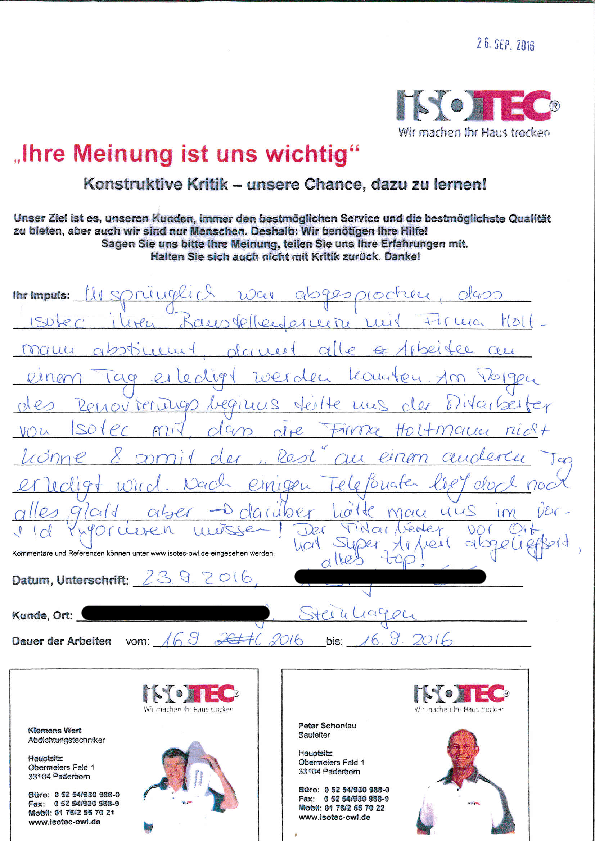 26. SEP. 2016
ISOTEC®
Wir machen Ihr Haus trocken
„Ihre Meinung ist uns wichtig“
Konstruktive Kritik – unsere Chance, dazu zu lernen!
Unser Ziel ist es, unseren Kunden, immer den bestmöglichen Service und die bestmöglichste Qualität
zu bieten, aber auch wir sind nur Menschen. Deshalb: Wir benötigen Ihre Hilfe!
Sagen Sie uns bitte Ihre Meinung, teilen Sie uns Ihre Erfahrungen mit.
Halten Sie sich auch nicht mit Kritik zurück. Danke!
Ihr Impuls: Ursprünglich war abgesprochen, dass
isotec ihren Baustellentermine mit Firma Holt-
mann abstimmt, damit alle Arbeiten an
einem Tag erledigt werden konnten. Am Morgen
des Renovierungsbeginns teilte uns der Mitarbeiter
von Isotec mit, dass die Firma Holtmann nicht
könne & somit der „Rest“ an einem anderen Tag
erledigt wird. Nach einigen Telefonaten lief doch noch
alles glatt, aber → darüber hätte man uns im Vor-
feld informieren müssen! Der Mitarbeiter vor Ort
hat super Arbeit abgeliefert,
alles top!
Kommentare und Referenzen können unter www.isotec-owl.de eingesehen werden.
Datum, Unterschrift: 23.9.2016,
Kunde, Ort: Steinhagen
Dauer der Arbeiten vom: 16.9 2016 bis: 16.9.2016
ISOTEC®
Wir machen Ihr Haus trocken
Klemens Wert
Abdichtungstechniker
Hauptsitz
Obermeiers Feld 1
33104 Paderborn
Büro: 0 52 54/930 988-0
Fax: 0 52 54/930 988-9
Mobil: 01 76/2 55 70 21
www.isotec-owl.de
ISOTEC®
Wir machen Ihr Haus trocken
Peter Schonlau
Bauleiter
Hauptsitz
Obermeiers Feld 1
33104 Paderborn
Büro: 0 52 54/930 988-0
Fax: 0 52 54/930 988-9
Mobil: 01 76/2 55 70 22
www.isotec-owl.de